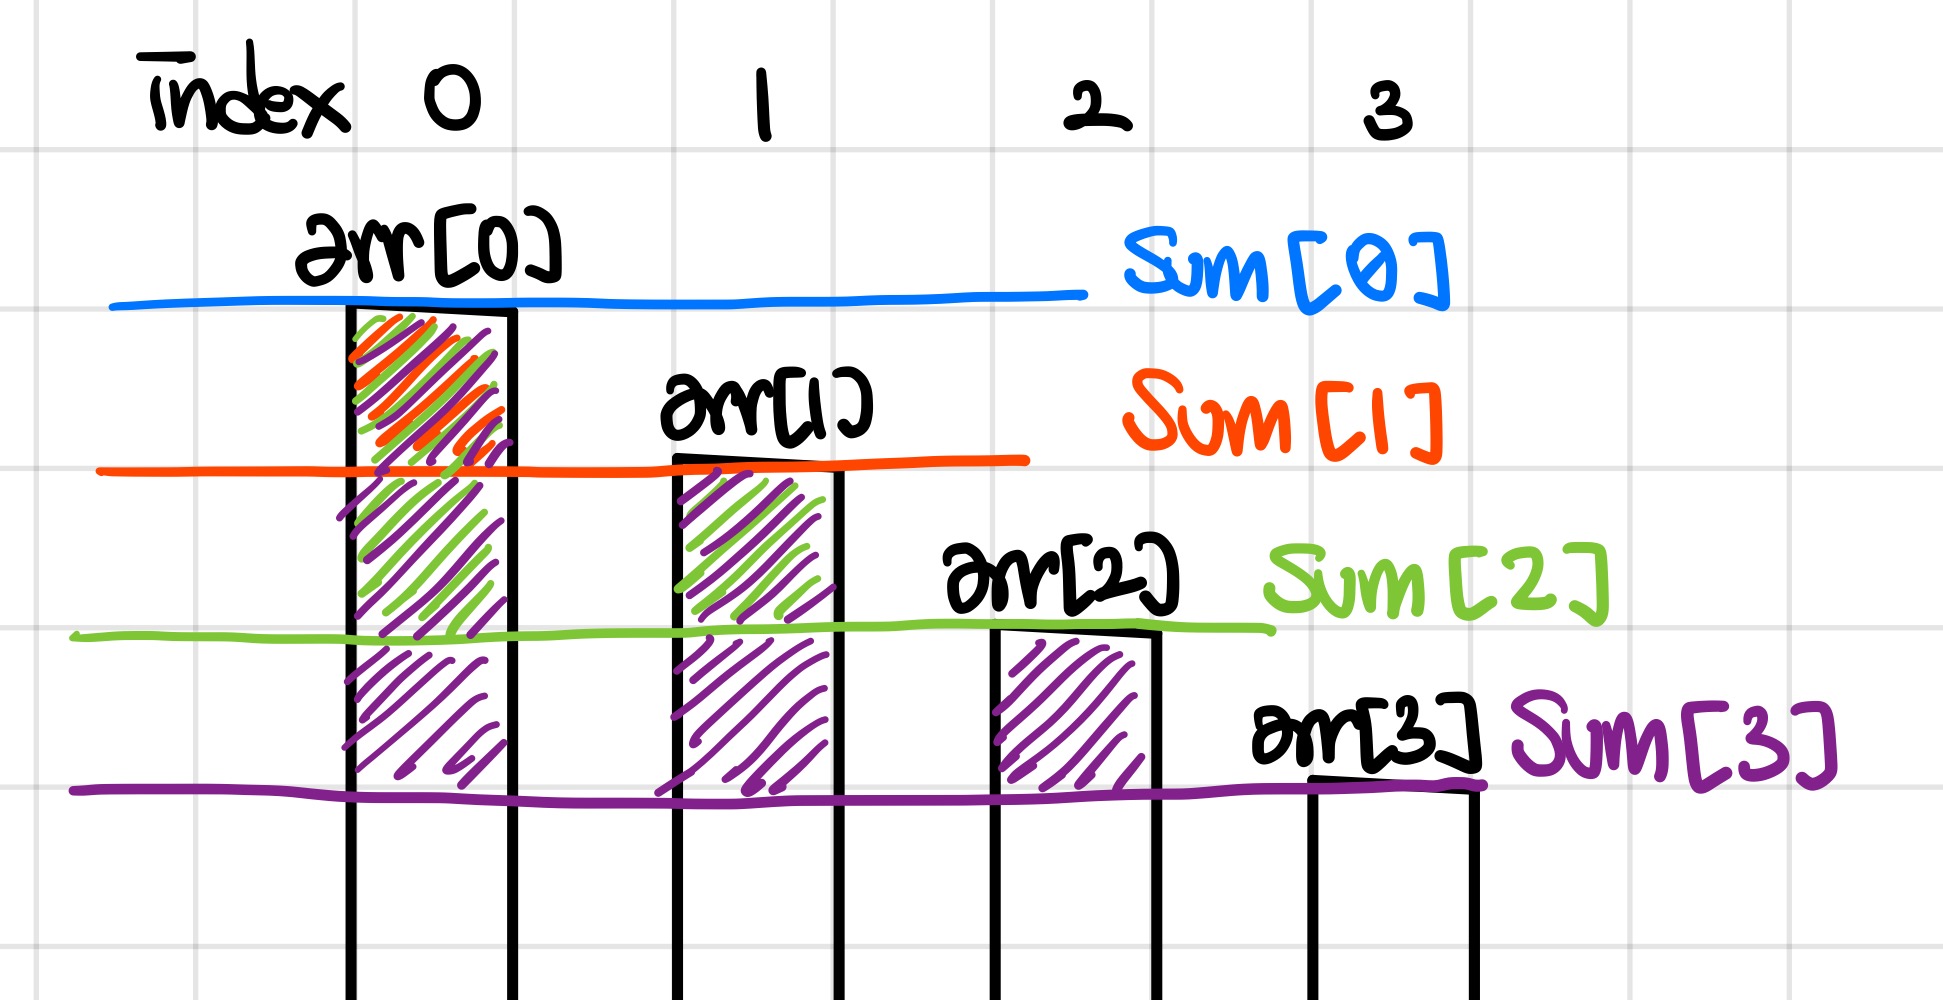 index 0 1 2 3
arr[0]
Sum[0]
arr[1]
Sum[1]
arr[2]
Sum[2]
arr[3]
Sum[3]